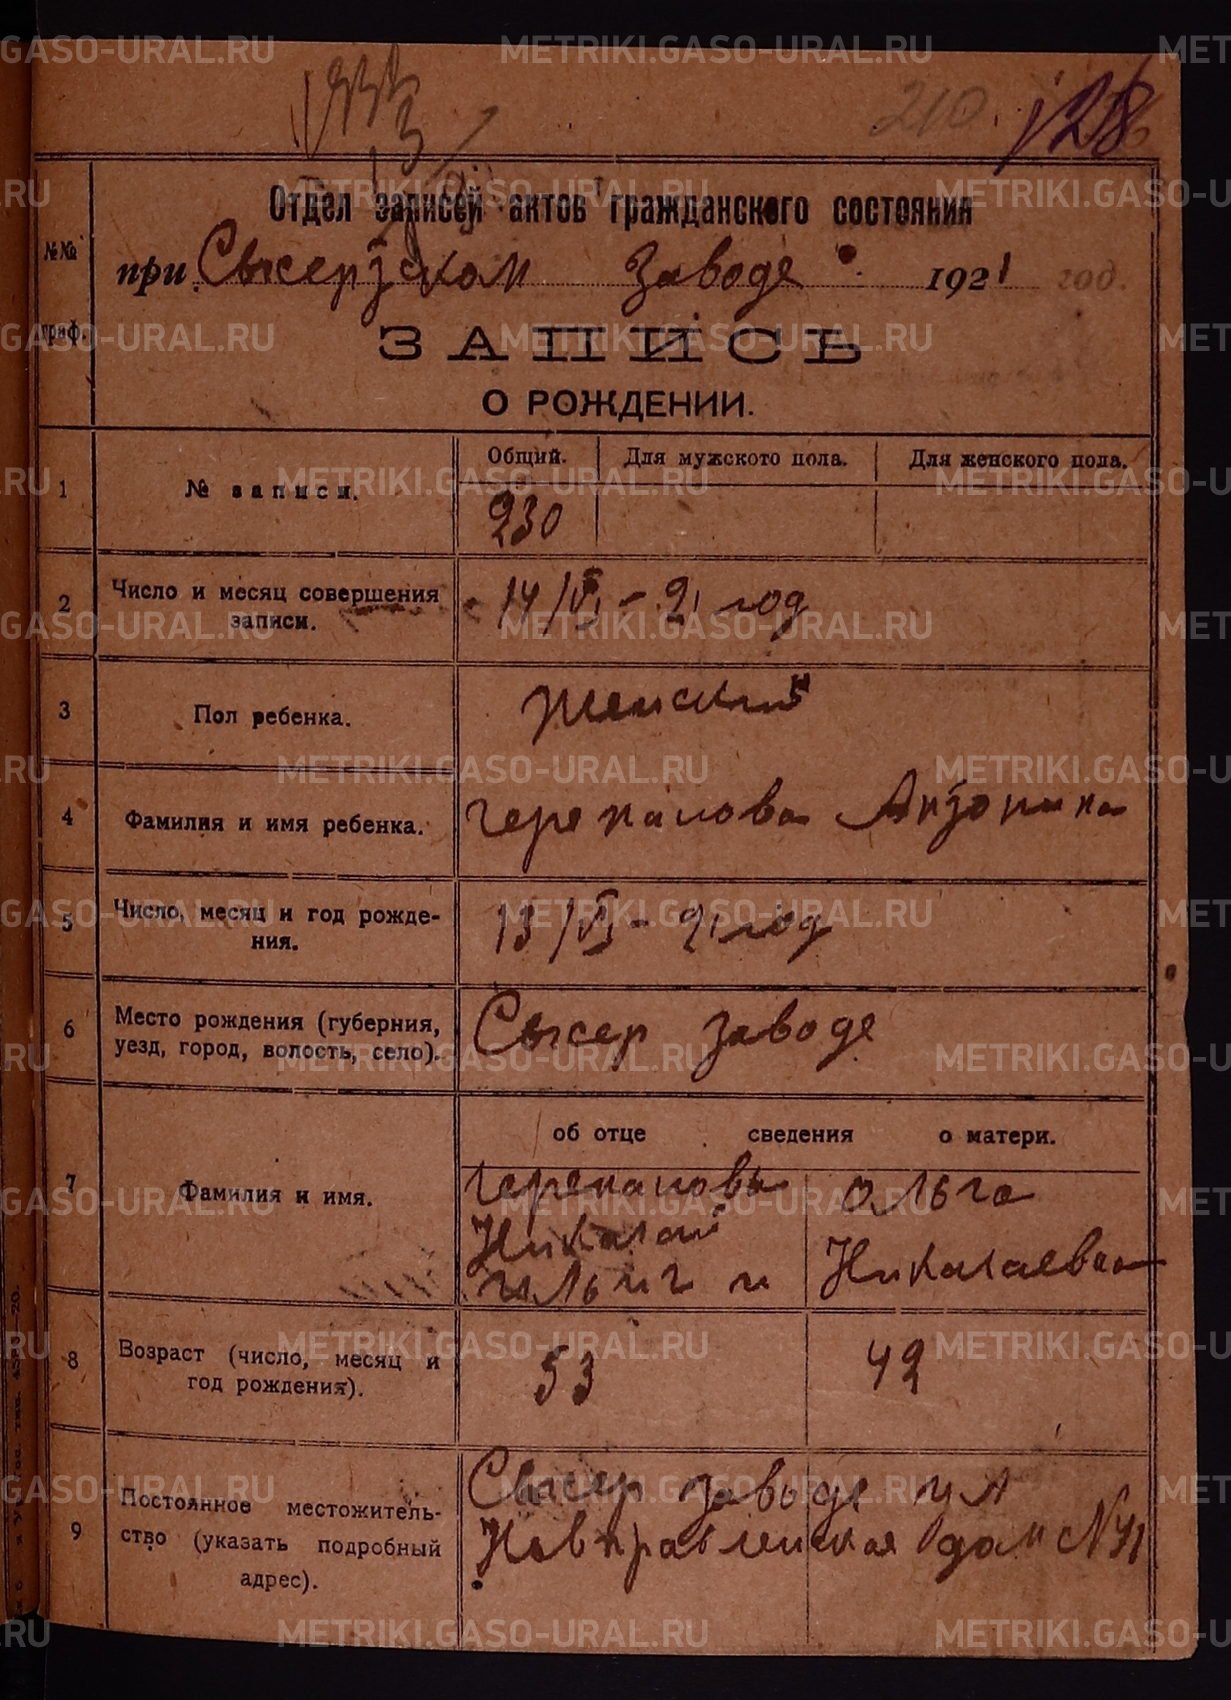 210 128
Отдел записей актов гражданского состояния
№№ граф.
при Сысерзском Заводе 1921 год.
ЗАПИСЬ
О РОЖДЕНИИ.
1 № записи. Общий. Для мужского пола. Для женского пола.
230
2 Число и месяц совершения записи. 14/VI - 21 год
3 Пол ребенка. Женский
4 Фамилия и имя ребенка. Черепанова Антонина
5 Число, месяц и год рожде-
ния. 13/VI - 21 год
6 Место рождения (губерния,
уезд, город, волость, село). Сысер заводе
об отце сведения о матери.
7 Фамилия и имя. Черепановы Ольга
Николай Николаевна
Ильич и
8 Возраст (число, месяц и
год рождения). 53 42
9 Постоянное местожитель-
ство (указать подробный
адрес). Сысер заводе ул
дом №
METRIKI.GASO-URAL.RU